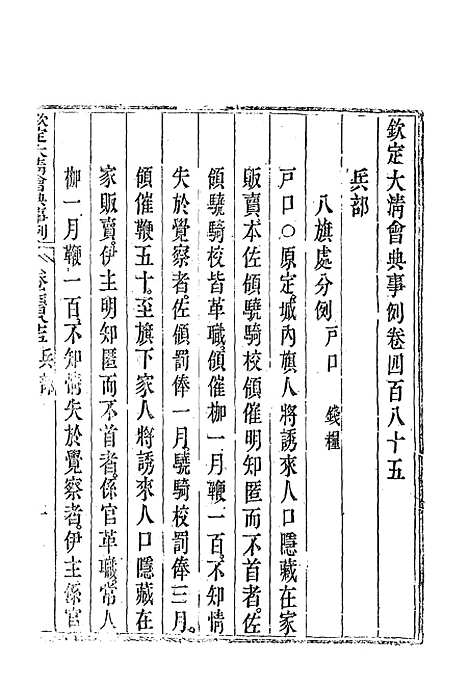 欽定大清會典事例卷四百八十五
兵部
八旗處分例 戸口 錢糧
戸口○原定。城內旗人將誘來人口隱藏在家
販賣本佐領驍騎校領催明知匿而不首者。佐
領驍騎校皆革職。領催枷一月鞭一百。不知情
失於覺察者。佐領罰俸一月。驍騎校罰俸三月。
領催鞭五十。至旗下家人將誘來人口隱藏在
家販賣。伊主明知匿而不首者。係官革職。常人
枷一月鞭一百。不知情失於覺察者。伊主係官
欽定大清會典事例
兵部